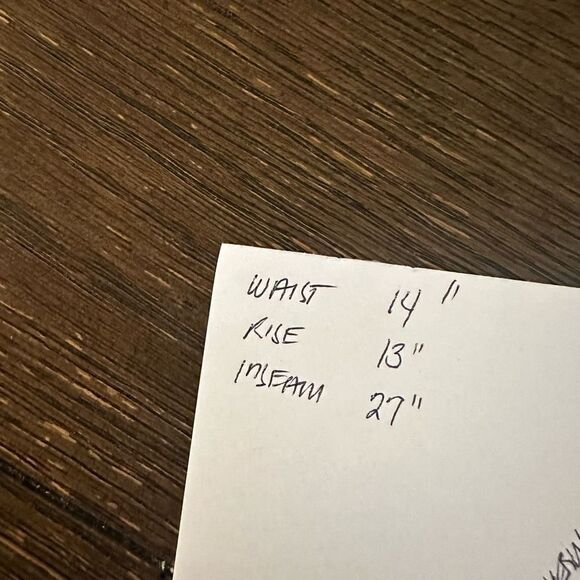 WAIST 14"
RISE 13"
INSEAM 27"